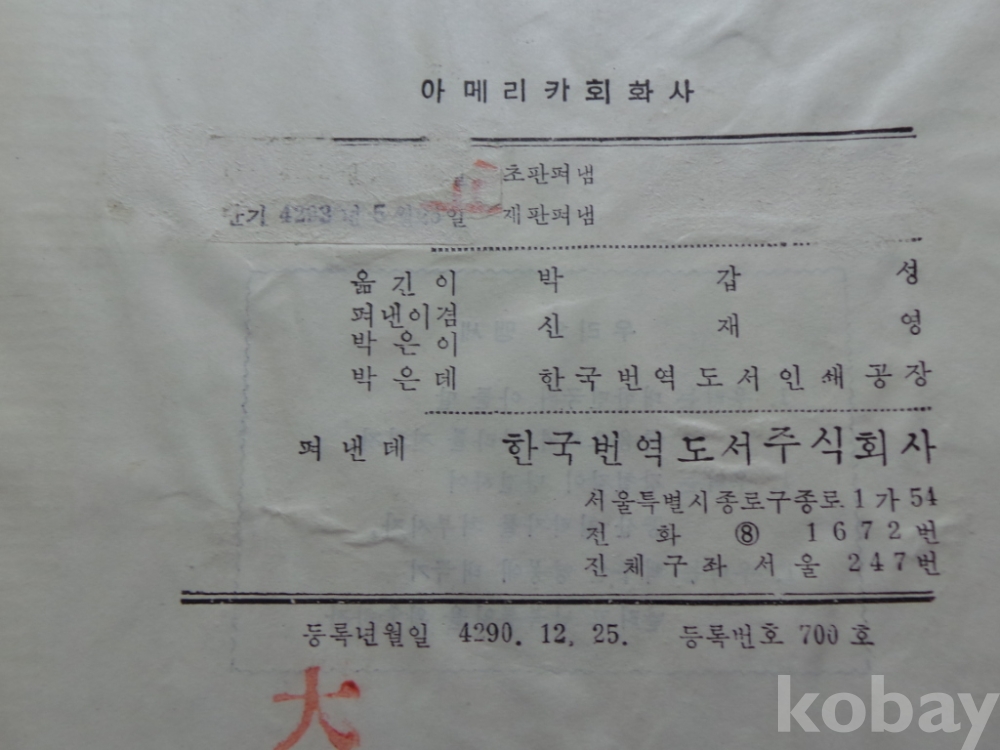 아메리카회화사
초판펴냄
단기 4293년 5월 일 재판펴냄
옮긴이 박갑성
펴낸이겸 박은이 신재영
박은데 한국번역도서인쇄공장
펴낸데 한국번역도서주식회사
서울특별시종로구종로1가54
전화 ⑧ 1672번
진체구좌 서울 247번
등록년월일 4290. 12. 25. 등록번호 700호
大
kobay